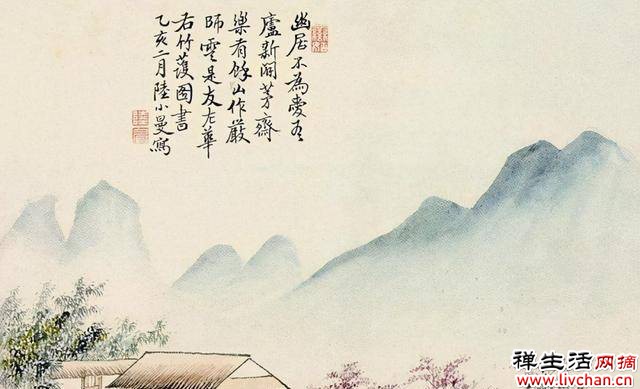 幽居不為愛吾
廬新開茅齋
樂有餘山作嚴
師雲是友左華
右竹護圖書
乙亥二月陸小曼寫
禅生活网摘
www.livchan.cn